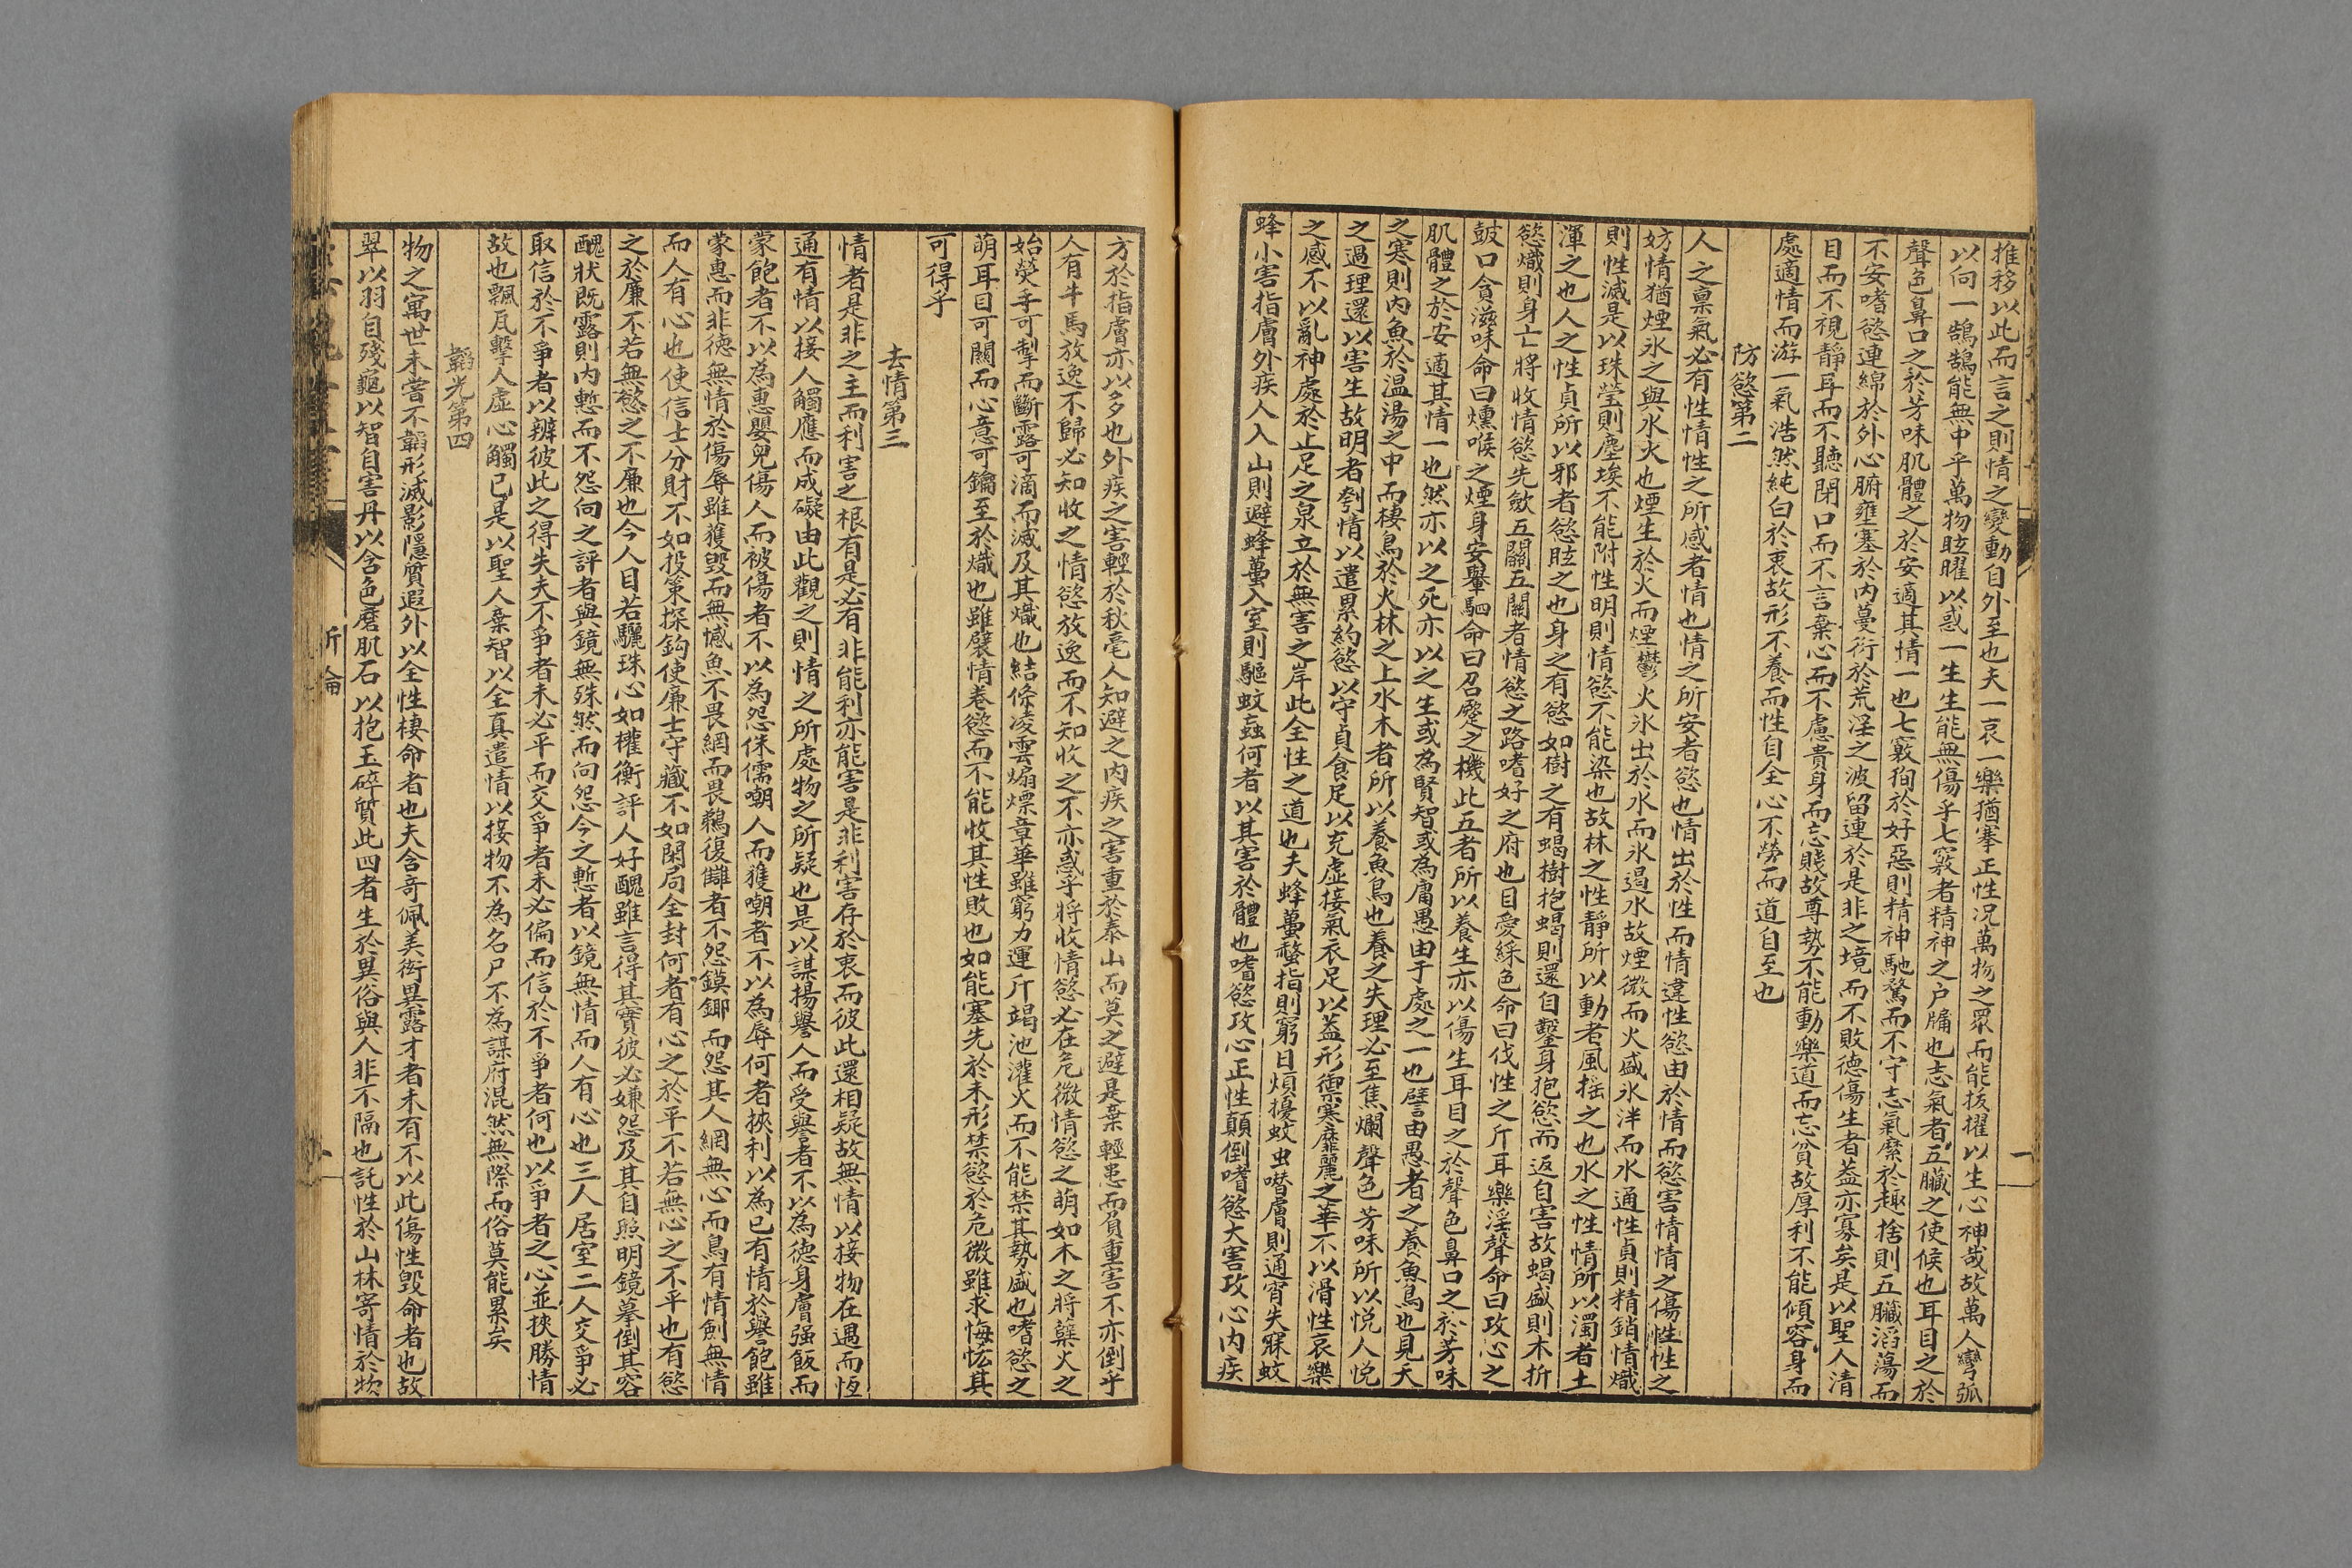 推移以此而言之則情之變動自外至也夫一哀一樂猶搴正性况萬物之眾而能拔擢以生心神哉故萬人彎弧
以向一鵠鵠能無中乎萬物眩曜以惑一生生能無傷乎七竅者精神之户牖也志氣者五臟之使候也耳目之於
聲色鼻口之於芳味肌體之於安適其情一也七竅徇於好惡則精神馳騖而不守志氣縻於趣捨則五臟滔蕩而
不安嗜慾連綿於外心腑壅塞於内蔓衍於荒淫之波留連於是非之境而不敗德傷生者蓋亦寡矣是以聖人清
目而不視靜耳而不聽閉口而不言棄心而不慮貴身而忘賤故尊勢不能動樂道而忘貧故厚利不能傾容身而
處適情而游一氣浩然純白於衷故形不養而性自全心不勞而道自至也
防慾第二
人之禀氣必有性情性之所感者情也情之所安者慾也情出於性而情違性慾由於情而慾害情情之傷性性之
妨情猶煙氷之與水火也煙生於火而煙鬱火氷出於水而氷遏水故煙微而火盛氷泮而水通性貞則精銷情熾
則性滅是以珠瑩則塵埃不能附性明則情慾不能染也故林之性靜所以動者風摇之也水之性情所以濁者土
渾之也人之性貞所以邪者慾眩之也身之有慾如樹之有蝎樹抱蝎則還自鑿身抱慾而返自害故蝎盛則木折
慾熾則身亡將收情慾先斂五關五關者情慾之路嗜好之府也目愛綵色命曰伐性之斤耳樂淫聲命曰攻心之
鼓口貪滋味命曰燻喉之煙身安轝駟命曰召蹷之機此五者所以養生亦以傷生耳目之於聲色鼻口之於芳味
肌體之於安適其情一也然亦以之死亦以之生或為賢智或為庸愚由于處之一也譬由愚者之養魚鳥也見天
之寒則内魚於温湯之中而棲鳥於火林之上水木者所以養魚鳥也養之失理必至焦爛聲色芳味所以悦人悦
之過理還以害生故明者刳情以遣累約慾以守貞食足以充虚接氣衣足以蓋形禦寒靡麗之華不以滑性哀樂
之感不以亂神處於止足之泉立於無害之岸此全性之道也夫蜂蠆螫指則窮日煩擾蚊虫噆膚則通宵失寐蚊
蜂小害指膚外疾人入山則避蜂蠆入室則驅蚊蝱何者以其害於體也嗜慾攻心正性顛倒嗜慾大害攻心内疾
方於指膚亦以多也外疾之害輕於秋毫人知避之内疾之害重於泰山而莫之避是棄輕患而負重害不亦倒乎
人有牛馬放逸不歸必知收之情慾放逸而不知收之不亦惑乎將收情慾必在危微情慾之萌如木之將蘖火之
始熒手可掣而斷露可滴而滅及其熾也結條凌雲煽熛章華雖窮力運斤竭池灌火而不能禁其勢盛也嗜慾之
萌耳目可關而心意可鑰至於熾也雖襞情卷慾而不能收其性敗也如能塞先於未形禁慾於危微雖求悔恡其
可得乎
去情第三
情者是非之主而利害之根有是必有非能利亦能害是非利害存於衷而彼此還相疑故無情以接物在遇而恆
通有情以接人觸應而成礙由此觀之則情之所處物之所疑也是以謀揚譽人而受譽者不以為德身膚强飯而
蒙飽者不以為惠嬰兒傷人而被傷者不以為怨侏儒嘲人而獲嘲者不以為辱何者挾利以為己有情於譽飽雖
蒙惠而非德無情於傷辱雖獲毀而無憾魚不畏網而畏鵜復讎者不怨鏌鋣而怨其人網無心而鳥有情劍無情
而人有心也使信士分財不如投策探鈎使廉士守藏不如閉局全封何者有心之於平不若無心之不平也有慾
之於廉不若無慾之不廉也今人目若驪珠心如權衡評人好醜雖言得其實彼必嫌怨及其自照明鏡摹倒其容
醜狀既露則内慙而不怨向之評者與鏡無殊然而向怨今之慙者以鏡無情而人有心也三人居室二人交爭必
取信於不爭者以辨彼此之得失夫不爭者未必平而交爭者未必偏而信於不爭者何也以爭者之心並挾勝情
故也飄瓦擊人虛心觸己是以聖人棄智以全真遣情以接物不為名尸不為謀府混然無際而俗莫能累矣
韜光第四
物之寓世未嘗不韜形滅影隱質遐外以全性棲命者也夫含奇佩美衒異露才者未有不以此傷性毀命者也故
翠以羽自殘龜以智自害丹以含色磨肌石以抱玉碎質此四者生於異俗與人非不隔也託性於山林寄情於物